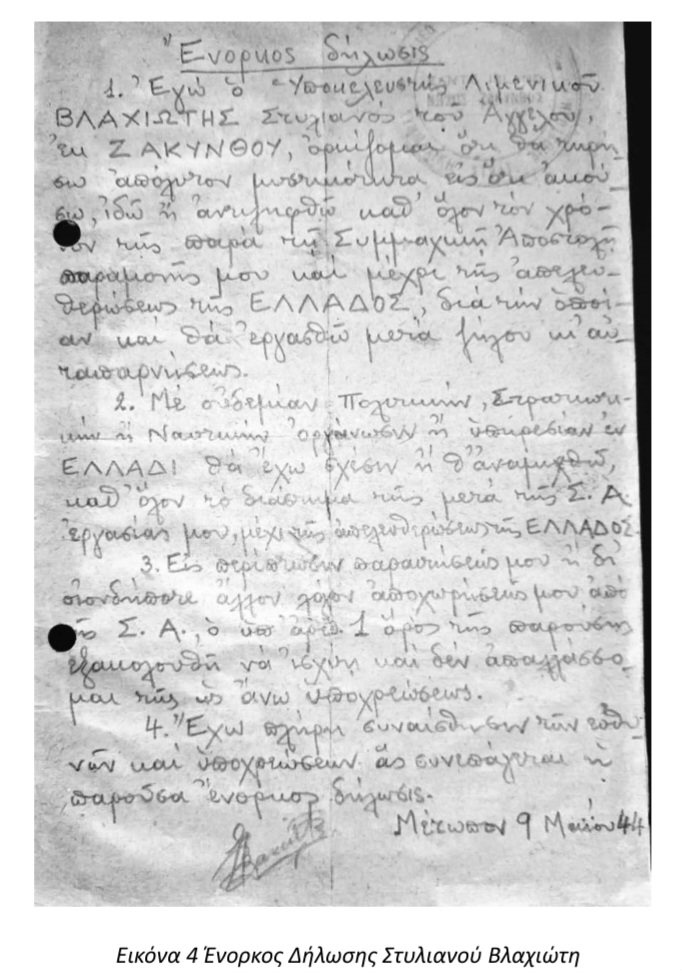 Ἔνορκος δήλωσις
1. Ἐγὼ ὁ Ὑποκελευστὴς Λιμενικοῦ
ΒΛΑΧΙΩΤΗΣ Στυλιανὸς τοῦ Ἀγγέλου,
ἐκ ΖΑΚΥΝΘΟΥ, ὁρκίζομαι ὅτι θὰ τηρή-
σω ἀπόλυτον μυστικότητα εἰς ὅτι ἀκού-
σω, ἰδῶ ἢ ἀντιληφθῶ καθ' ὅλον τὸν χρό-
νον τῆς παρὰ τῇ Συμμαχικῇ Ἀποστολῇ
παραμονῆς μου καὶ μέχρι τῆς ἀπελευ-
θερώσεως τῆς ΕΛΛΑΔΟΣ, διὰ τὴν ὁποί-
αν καὶ θὰ ἐργασθῶ μετὰ ζήλου κι' αὐ-
ταπαρνήσεως.
2. Μὲ οὐδεμίαν Πολιτικήν, Στρατιωτι-
κὴν ἢ Ναυτικὴν ὀργάνωσιν ἢ ὑπηρεσίαν ἐν
ΕΛΛΑΔΙ θὰ ἔχω σχέσιν ἢ θ' ἀναμιχθῶ,
καθ' ὅλον τὸ διάστημα τῆς μετὰ τῆς Σ. Α.
ἐργασίας μου, μέχρι τῆς ἀπελευθερώσεως τῆς ΕΛΛΑΔΟΣ.
3. Εἰς περίπτωσιν παραιτήσεώς μου ἢ δι'
οἱονδήποτε ἄλλον λόγον ἀποχωρήσεώς μου ἀπὸ
τῆς Σ. Α., ὁ ὑπ' ἀριθ. 1 ὅρος τῆς παρούσης
ἐξακολουθῇ νὰ ἰσχύῃ καὶ δὲν ἀπαλλάσσο-
μαι τῆς ὡς ἄνω ὑποχρεώσεως.
4. Ἔχω πλήρη συναίσθησιν τῶν εὐθυ-
νῶν καὶ ὑποχρεώσεων ἃς συνεπάγεται ἡ
παροῦσα ἔνορκος δήλωσις.
Μέτωπον 9 Μαΐου 44
Εικόνα 4 Ένορκος Δήλωσης Στυλιανού Βλαχιώτη